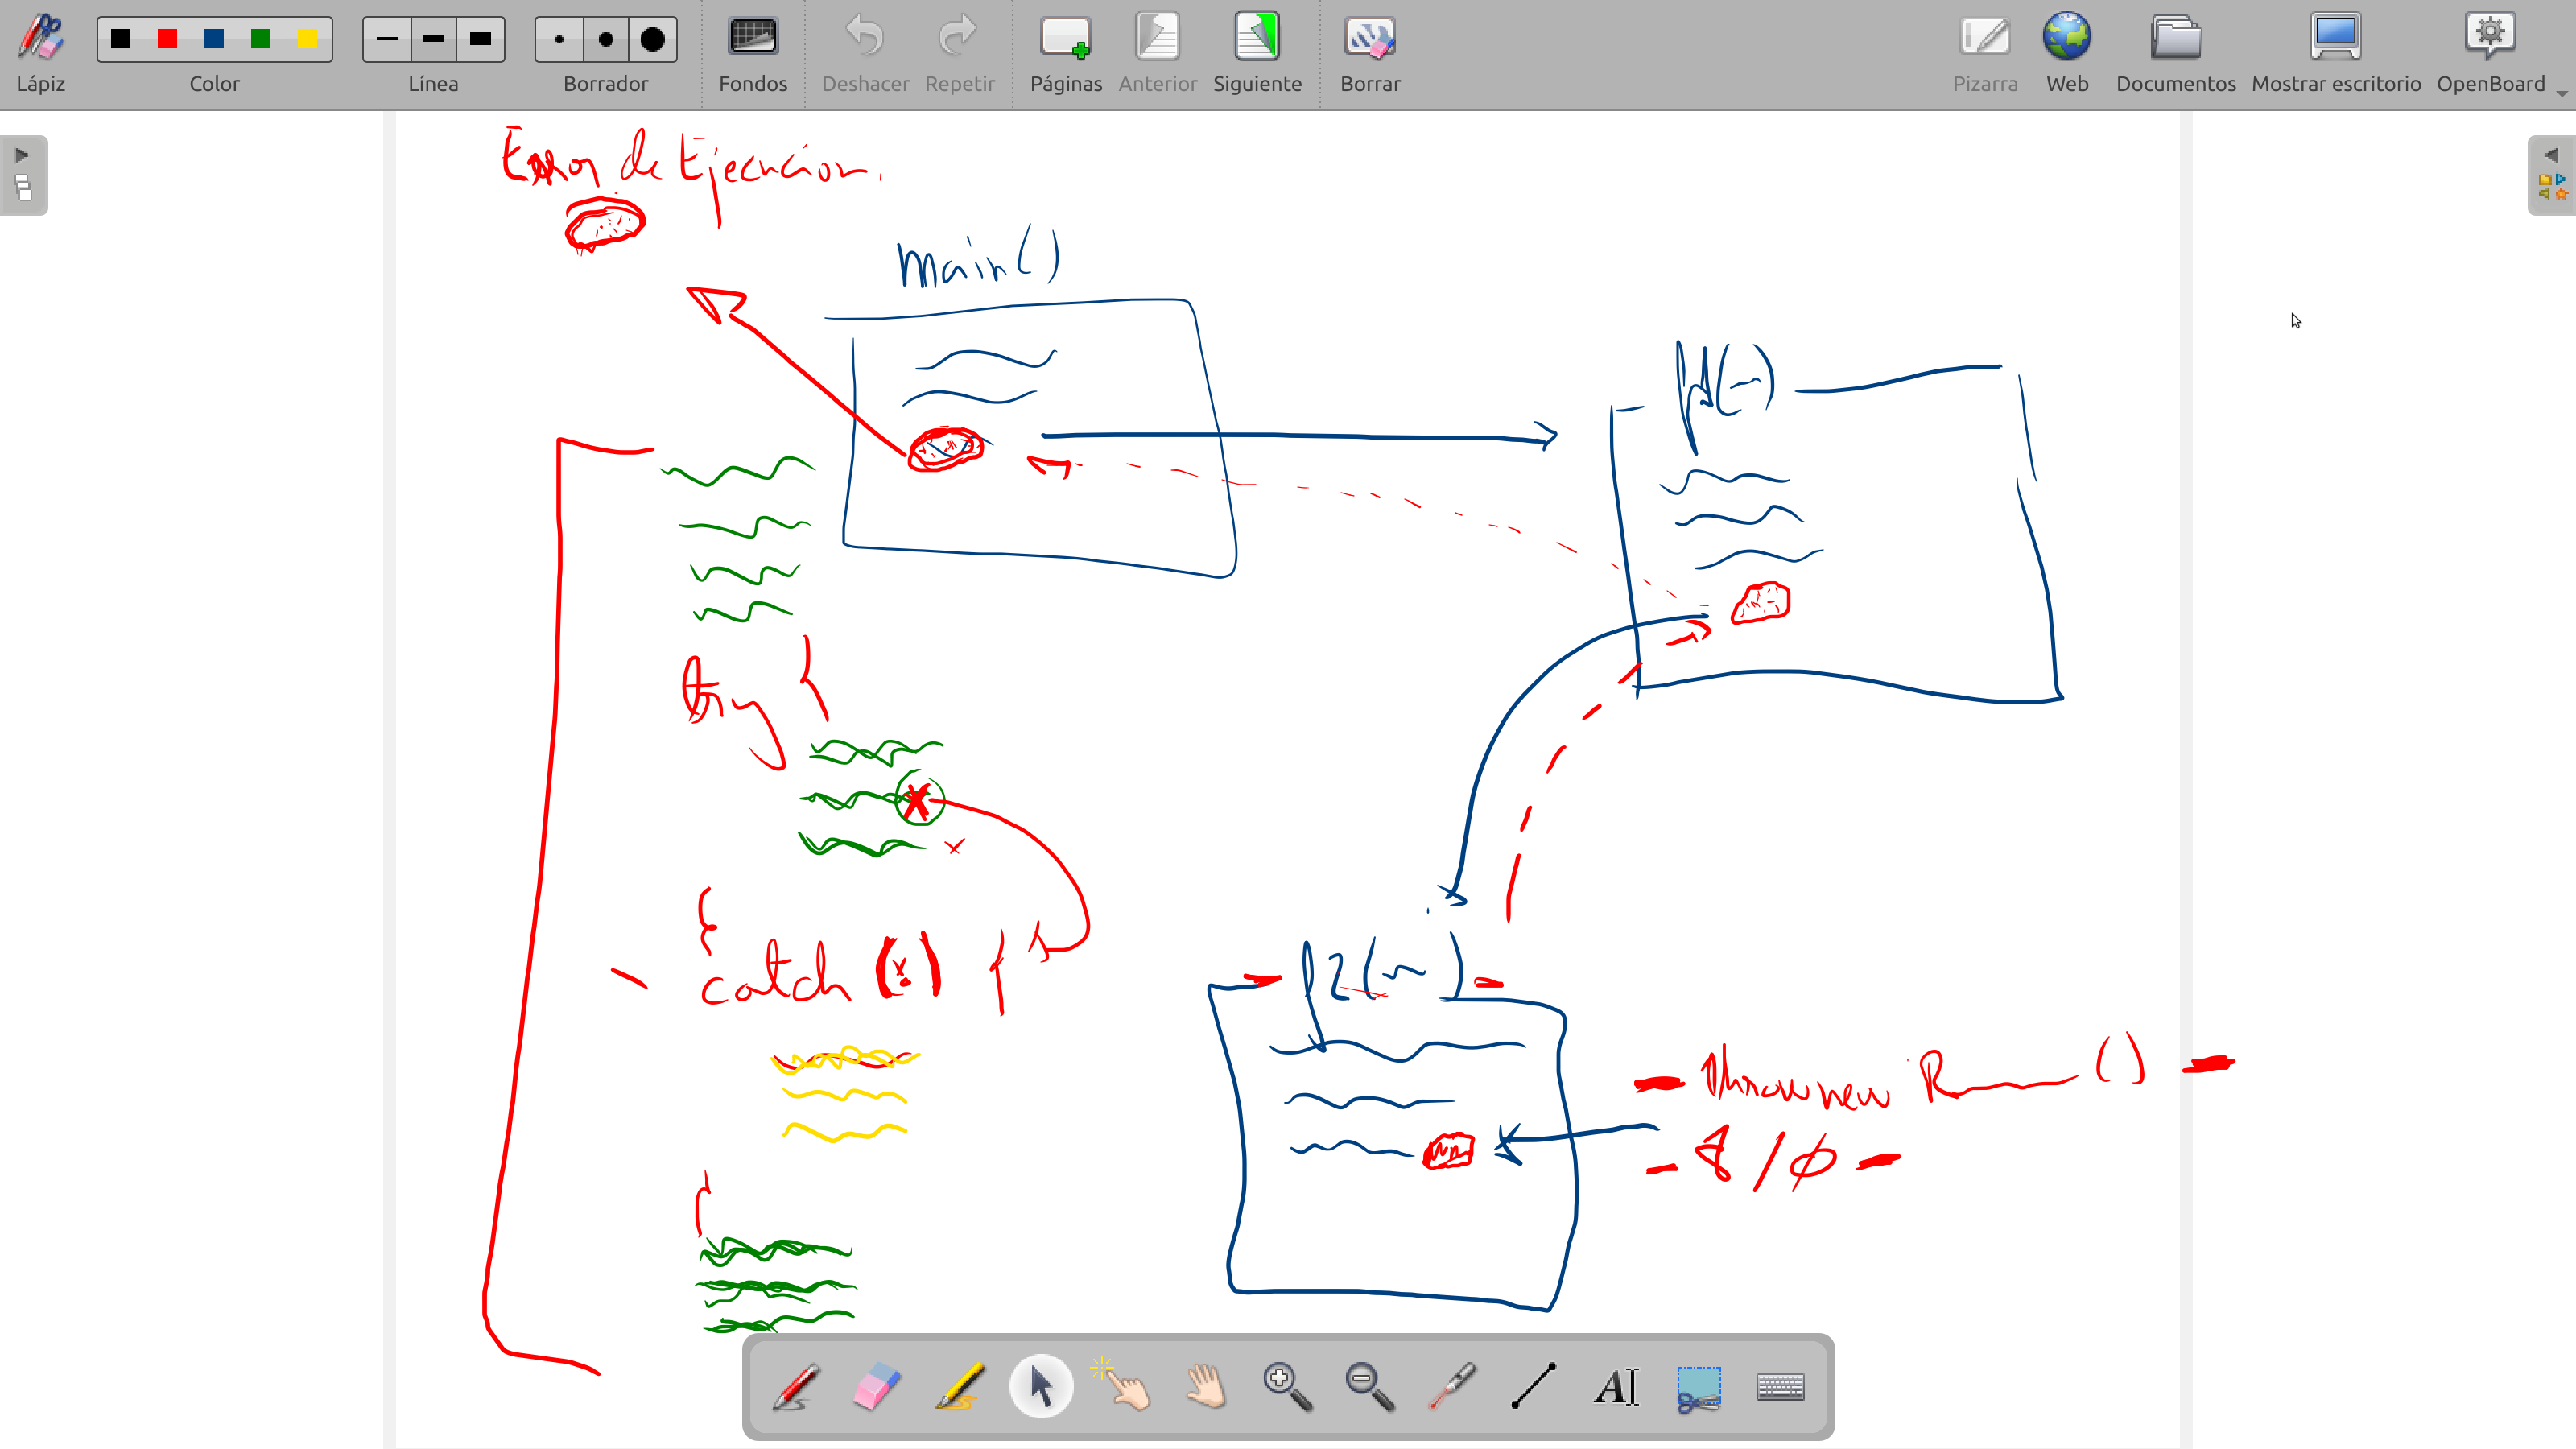 Lápiz
Color
Línea
Borrador
Fondos
Deshacer
Repetir
Páginas
Anterior
Siguiente
Borrar
Pizarra
Web
Documentos
Mostrar escritorio
OpenBoard
Error de Ejecucion.
main()
p1(~)
try {
}
catch (x) {
}
p2(~)
throw new R ()
8 / 0